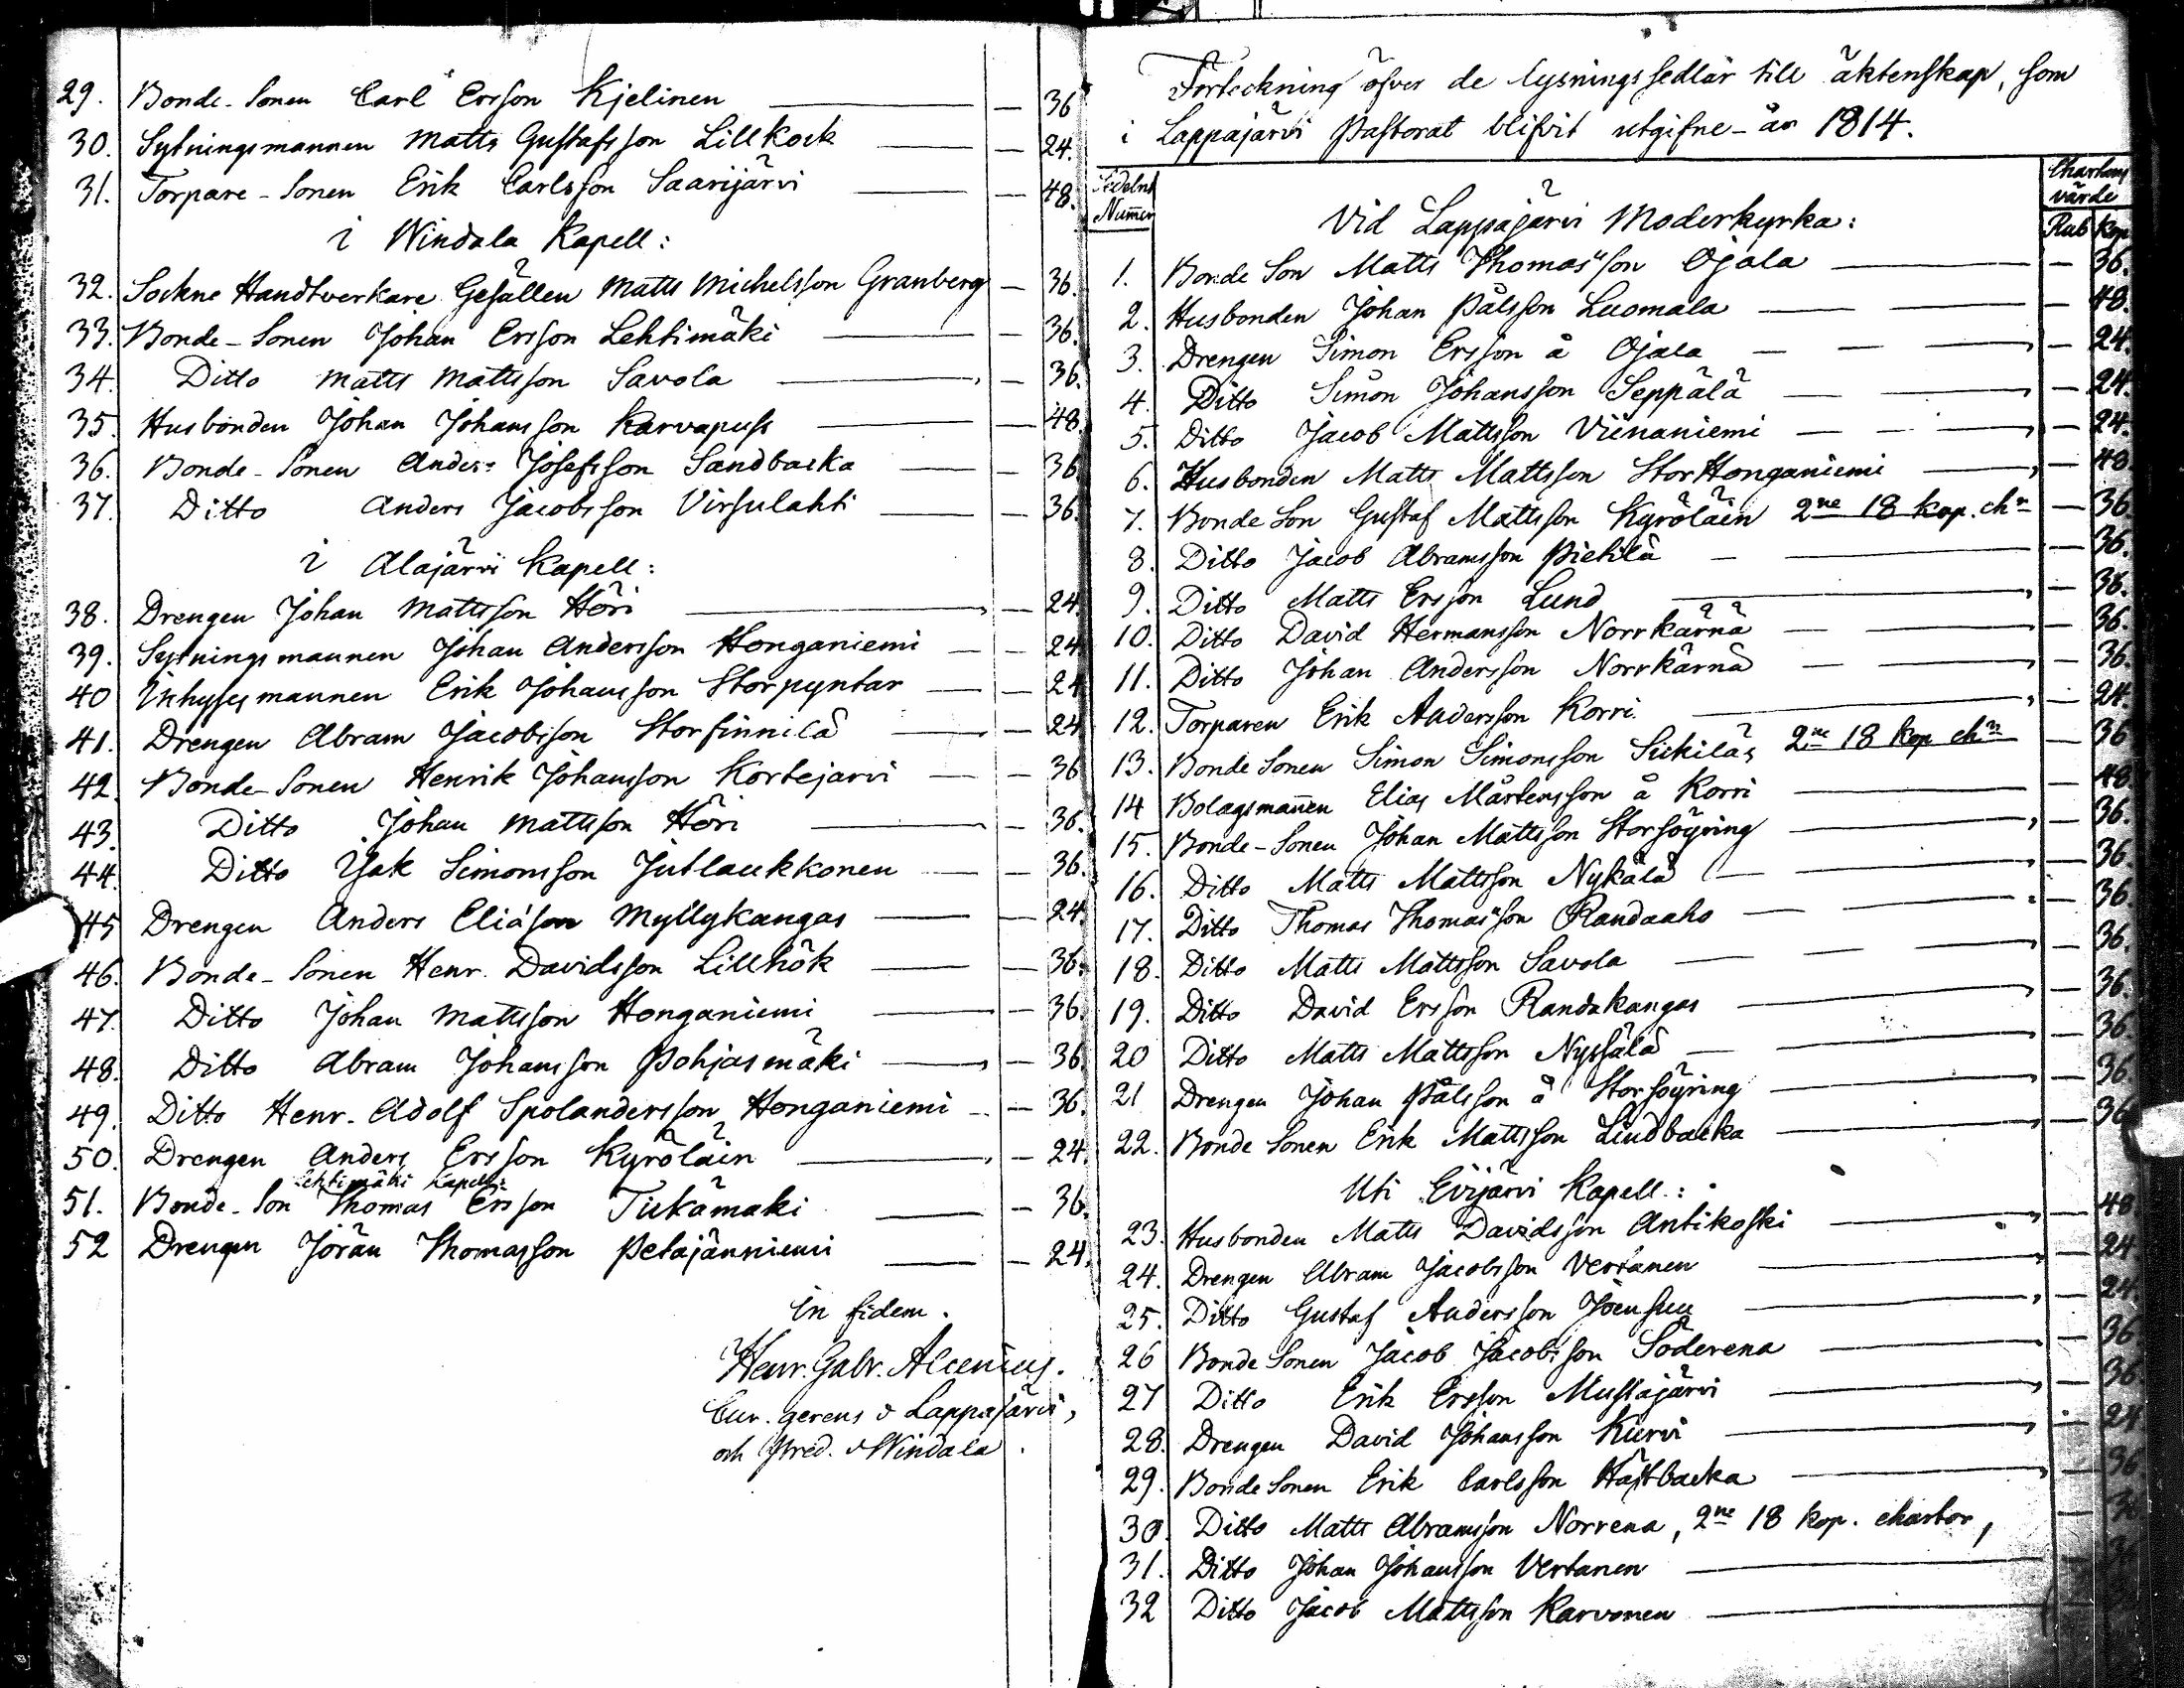 29. Bonde-Sonen Carl Ersson Kjelinen — 36
30. Sytningsmannen Matts Gustafsson Lillkock — 24.
31. Torpare-Sonen Erik Carlsson Saarijärvi — 48.
i Windala Kapell:
32. Sockne Handtverkare Gesällen Matts Michelsson Granberg — 36.
33. Bonde-Sonen Johan Ersson Lehtimäki — 36.
34. Ditto Matts Mattsson Savola — 36.
35. Husbonden Johan Johansson Karvapuss — 48.
36. Bonde-Sonen Anders Josefsson Sandbacka — 36
37. Ditto Anders Jacobsson Virsulahti — 36.
i Alajärvi Kapell:
38. Drengen Johan Mattsson Höri — 24.
39. Sytningsmannen Johan Andersson Honganiemi — 24
40 Inhysesmannen Erik Johansson Storpyntar — 24
41. Drengen Abram Jacobsson Storfinnilä — 24
42. Bonde-Sonen Henrik Johansson Kortejarvi — 36
43. Ditto Johan Mattsson Höri — 36.
44. Ditto Isak Simonsson Jutlaukkonen — 36.
45 Drengen Anders Eliásson Myllykangas — 24.
46. Bonde-Sonen Henr. Davidsson Lillhök — 36.
47. Ditto Johan Mattsson Honganiemi — 36.
48. Ditto Abram Johansson Pohjasmäki — 36.
49. Ditto Henr. Adolf Spolandersson Honganiemi — 36.
50. Drengen Anders Ersson Kyröläin — 24.
Lehtimäki Kapell:
51. Bonde-Son Thomas Ersson Tiikämaki — 36.
52 Drengen Jöran Thomasson Petäjänniemi — 24.
in fidem.
Henr. Gabr. Alcenius.
Cur. gerens i Lappajärvi,
och Pred. i Windala.
Förteckning öfver de lysningssedlar till äktenskap, som
i Lappajärvi Pastorat blifvit utgifne år 1814.
Sedelns Numer
Chartans värde
Rub Kop
Vid Lappajärvi Moderkyrka:
1. Bonde Son Matts Thomasson Ojala — 36.
2. Husbonden Johan Pålsson Luomala — 48.
3. Drengen Simon Ersson å Ojala — 24.
4. Ditto Simon Johansson Seppälä — 24.
5. Ditto Jacob Mattsson Viinaniemi — 24.
6. Husbonden Matts Mattsson StorHonganiemi — 48.
7. Bonde Son Gustaf Mattsson Kyröläin 2ne 18 kop. chr — 36
8. Ditto Jacob Abramsson Pietilä — 36.
9. Ditto Matts Ersson Lund — 36.
10. Ditto David Hermansson Norrkärnä — 36.
11. Ditto Johan Andersson Norrkärnä — 36.
12. Torparen Erik Andersson Korri — 24.
13. Bonde Sonen Simon Simonsson Sickilä, 2ne 18 kop chr — 36
14 Bolagsmannen Elias Mårtensson å Korri — 48
15. Bonde-Sonen Johan Mattsson Storsöyring — 36.
16. Ditto Matts Mattsson Nykälä — 36.
17. Ditto Thomas Thomasson Randaaho — 36.
18. Ditto Matts Mattsson Savola — 36.
19. Ditto David Ersson Randakangas — 36.
20 Ditto Matts Mattsson Nyssälä — 36.
21 Drengen Johan Pålsson å Storsöyring — 36.
22. Bonde Sonen Erik Mattsson Lindbacka — 36
Uti Evijärvi Kapell:
23. Husbonden Matts Davidsson Antikoski — 48
24. Drengen Abram Jacobsson Vertanen — 24
25. Ditto Gustaf Andersson Joensuu — 24.
26 Bonde Sonen Jacob Jacobsson Söderena — 36
27 Ditto Erik Ersson Mustajärvi — 36
28. Drengen David Johansson Kiirvi — 24
29. Bonde Sonen Erik Carlsson Hästbacka — 36
30. Ditto Matts Abramsson Norrena, 2ne 18 kop. chartor,
31. Ditto Johan Johansson Vertanen
32 Ditto Jacob Mattsson Karvonen